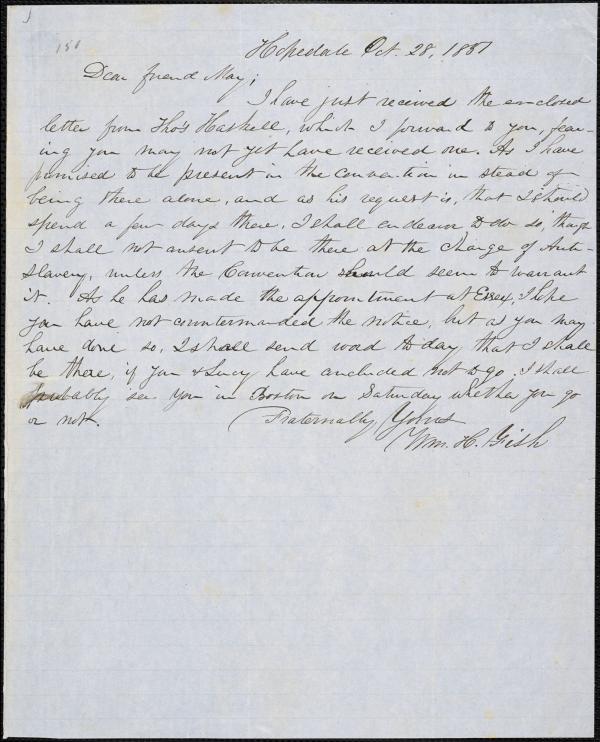 Hopedale Oct. 28, 1851
Dear friend May;
I have just received the enclosed
letter from Tho's Haskell, which I forward to you, fear-
ing you may not yet have received one. As I have
promised to be present in the convention in stead of
being there alone, and as his request is, that I should
spend a few days there, I shall endeavor to do so, though
I shall not consent to be there at the charge of Anti-
slavery, unless the Convention should seem to warrant
it. As he has made the appointment at Essex, I hope
you have not countermanded the notice, but as you may
have done so, I shall send word to day that I shall
be there, if you & Lucy have concluded not to go. I shall
probably see you in Boston on Saturday whether you go
or not. Fraternally Yours
Wm. H. Fish